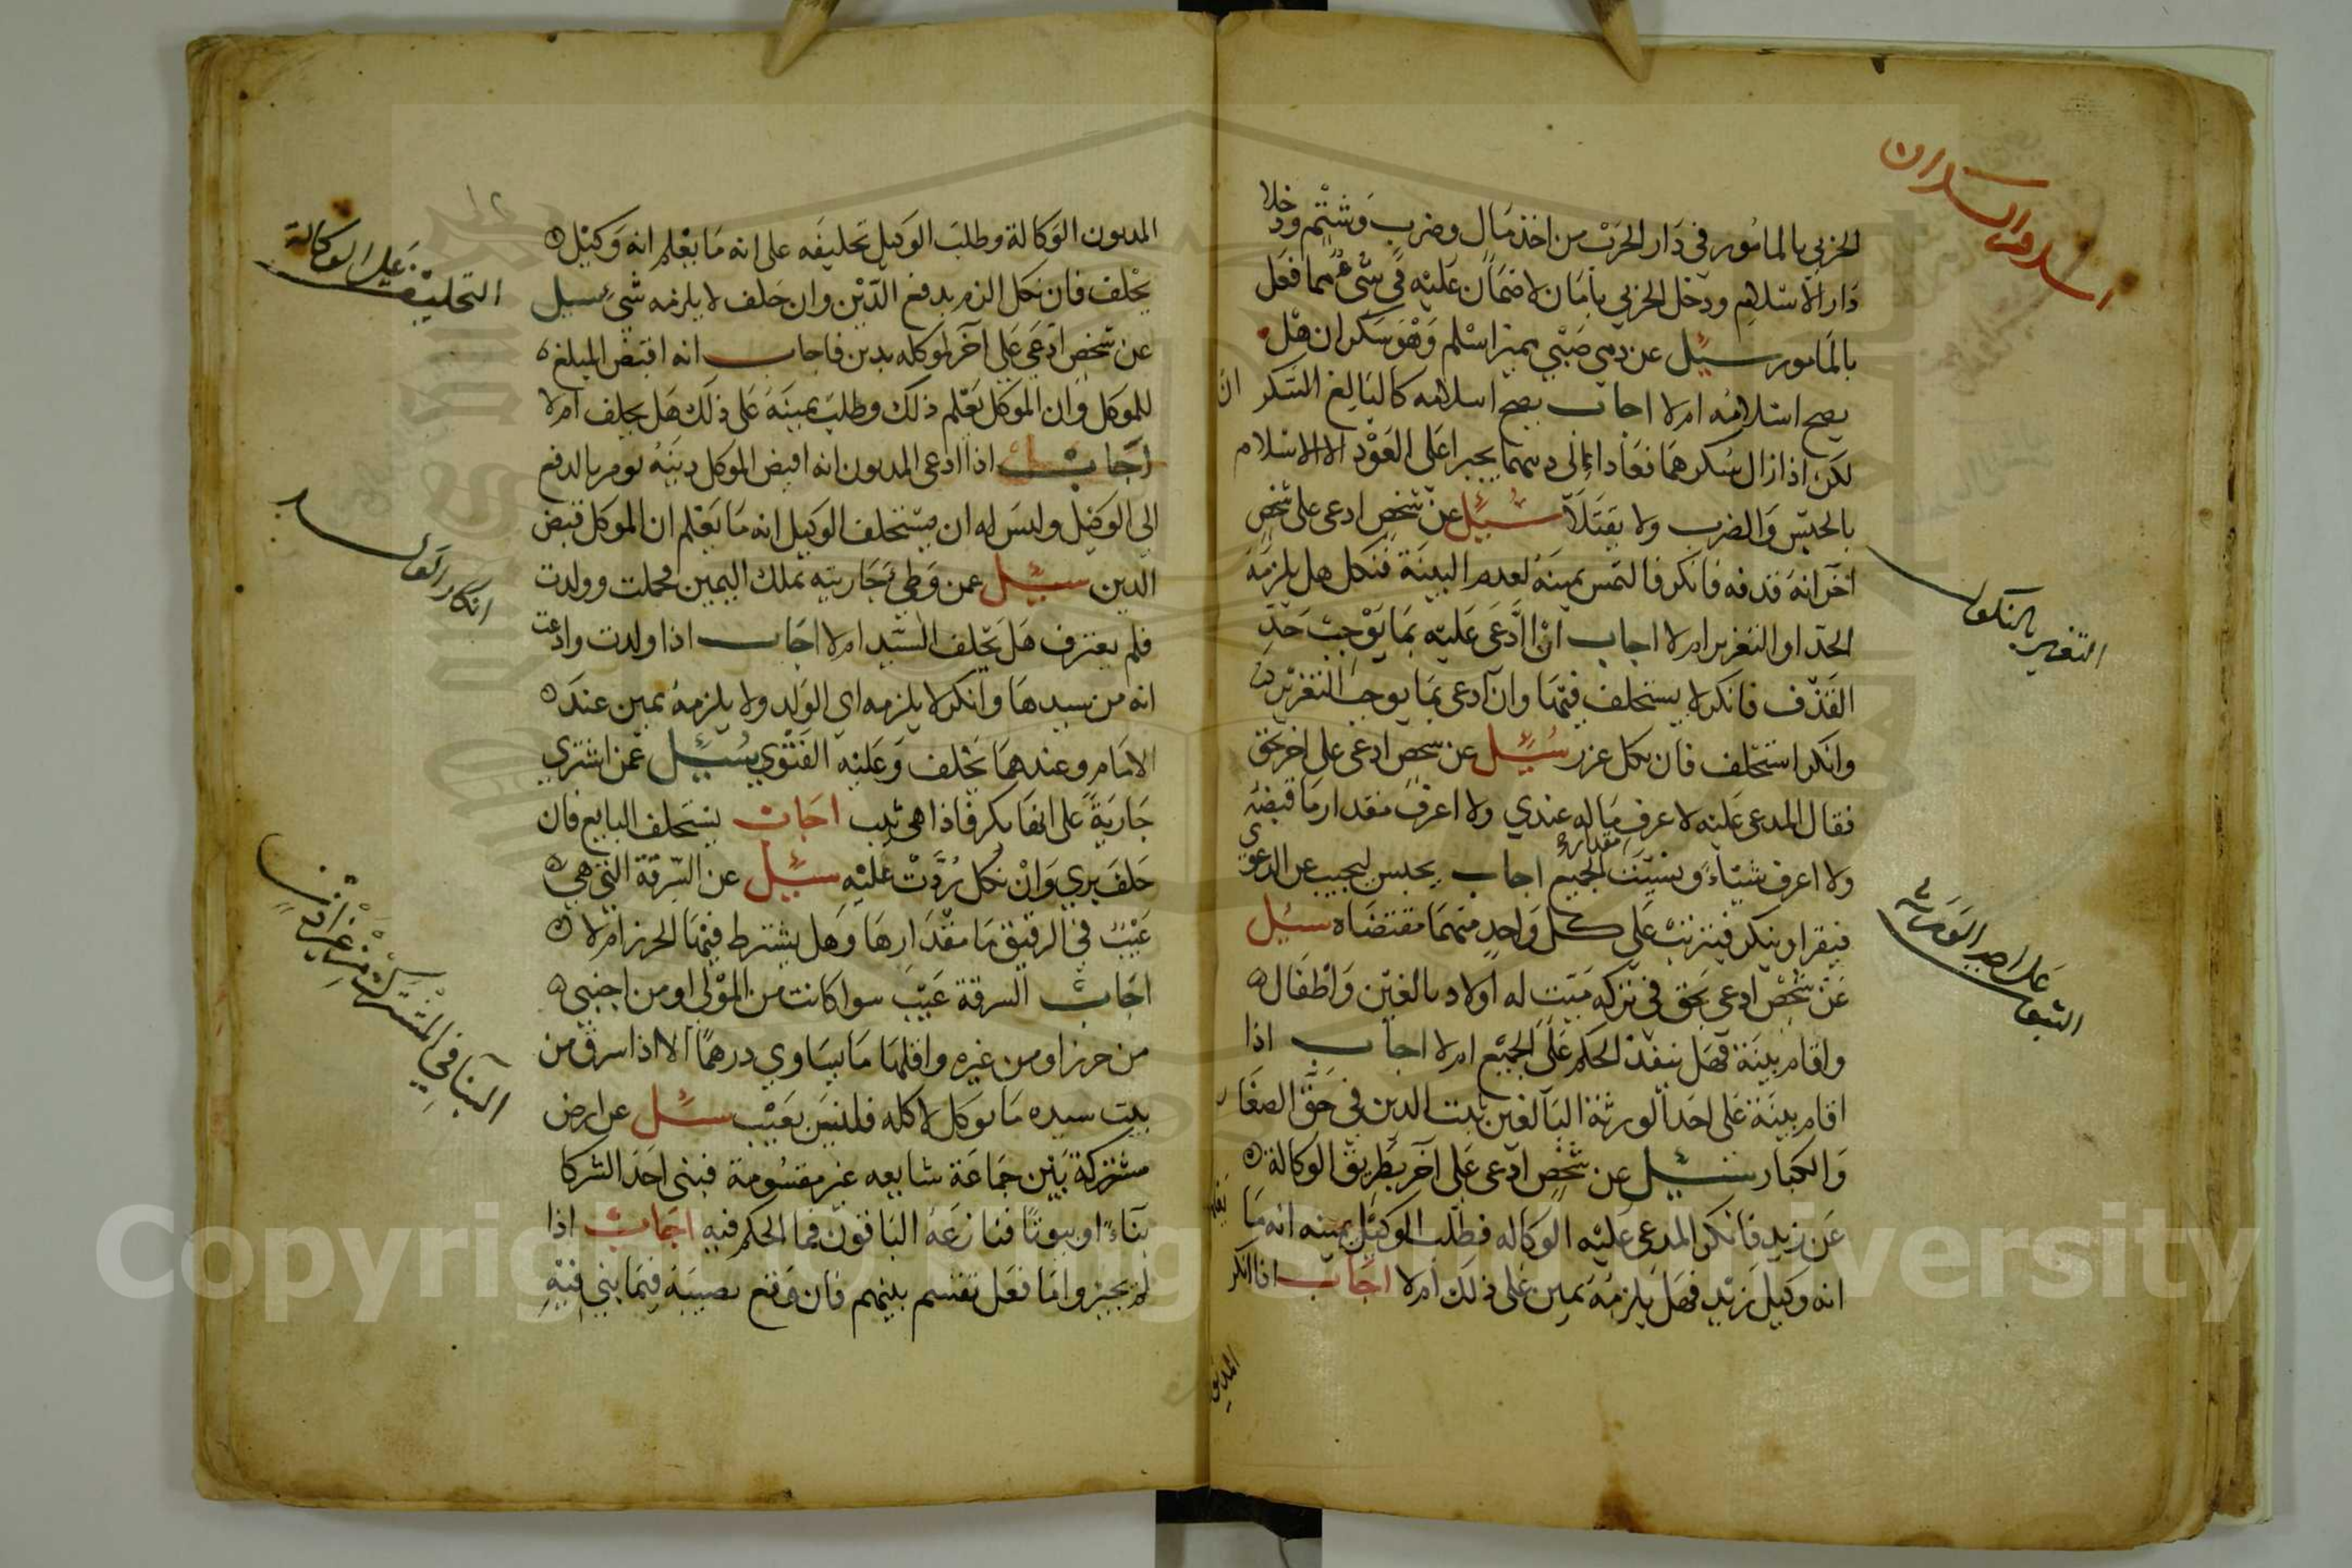 الحربي بالمامور في دار الحرب من اخذ مال وضرب وشتم ودخلا
دار الاسلام ودخل الحربي بامان لا ضمان عليه في شيء مما فعل
بالمامور سيل عن دمي صبي يميز اسلم وهو سكران هل
يصح اسلامه ام لا اجاب يصح اسلامه كالبالغ السكران
لكن اذا زال سكرهما فعادا الى دينهما يجبرا على العود الا الاسلام
بالحبس والضرب ولا يقتلا سيل عن شخص ادعى على شخص
اخر انه قدفه فانكر فالتمس يمينه لعدم البينة فنكل هل يلزمه
الحد او التعزير ام لا اجاب ان ادعى عليه بما يوجب حد
القذف فانكر لا يستحلف فيها وان ادعى بما يوجب التعزير
وانكر استحلف فان نكل عزر سيل عن شخص ادعى على اخر بحق
فقال المدعى عليه لا عرف ماله عندي ولا اعرف مقدار ما قبضه
ولا اعرف شيئاء ونسيت مقداره الجميع اجاب يحبس ليجيب عن الدعوى
فيقر او ينكر فيترتب على كل واحد منهما مقتضاه سيل
عن شخص ادعى بحق في تركه ميت له اولاد بالغين واطفال
واقام بينة فهل ينفذ الحكم على الجميع ام لا اجاب اذا
اقام بينة على احد الورثة البالغين ثبت الدين في حق الصغار
والكبار سيل عن شخص ادعى على آخر بطريق الوكالة
عن زيد فانكر المدعى عليه الوكاله فطلب الوكيل يمينه انه ما يعلم
انه وكيل زيد فهل يلزمه يمين على ذلك ام لا اجاب اذا انكر
المديون
اسلام السكران
التعزير بالنكول
على احد الورثة
المديون الوكالة وطلب الوكيل تحليفه على انه ما يعلم انه وكيل
يحلف فان نكل الزم بدفع الدين وان حلف لا يلزمه شيء سيل
عن شخص ادعى على آخر لموكله بدين فاجاب انه اقبض المبلغ
للموكل وان الموكل يعلم ذلك وطلب يمينه على ذلك هل يحلف ام لا
اجاب اذا ادعى المديون انه اقبض الموكل دينه يومر بالدفع
الى الوكيل وليس له ان يستحلف الوكيل انه ما يعلم ان الموكل قبض
الدين سيل عمن وطي جاريته بملك اليمين فحملت وولدت
فلم يعترف هل يحلف السيد ام لا اجاب اذا ولدت وادعت
انه من سيدها وانكر لا يلزمه اي الولد ولا يلزمه يمين عند
الامام وعندهما يحلف وعليه الفتوي سيل عمن اشتري
جارية على انها بكر فاذا هي ثيب اجاب يستحلف البايع فان
حلف بري وان نكل ردت عليه سيل عن السرقة التي هي
عيب في الرقيق ما مقدارها وهل يشترط فيها الحرز ام لا
اجاب السرقة عيب سوا كانت من المولى او من اجنبي
من حرز او من غيره واقلها ما يساوي درهما الا اذا سرق من
بيت سيده ما يوكل لا كله فليس بعيب سيل عن ارض
مشتركة بين جماعة شايعه غير مقسومة فبنى احد الشركا
بناء او بيوتا فنازعه الباقون فما الحكم فيه اجاب اذا
لم يجيزوا ما فعل تقتسم بينهم فان وقع نصيبه فيما بني فيه
التحليف على الوكالة
انكار الولد
البنا في المشترك من غير اذن
Copyright © King Saud University